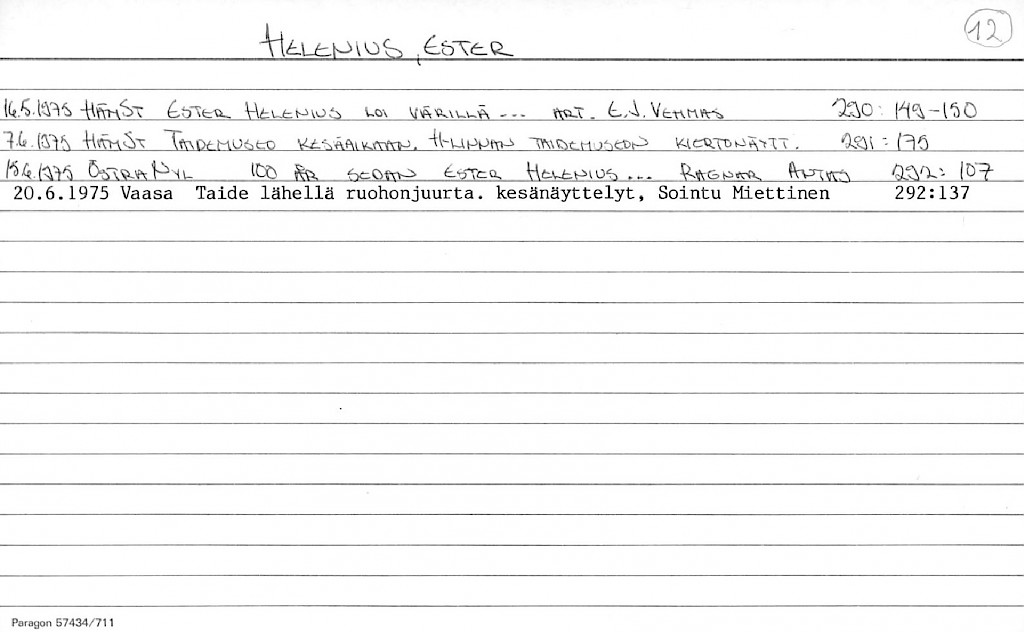 12
HELENIUS, ESTER
14.5.1975 HÄMST ESTER HELENIUS LOI VÄRILLÄ... ART. E.J. VEHMAS 290: 149-150
7.6.1975 HÄMST TAIDEMUSEO KESÄAIKAAN. H-LINNAN TAIDEMUSEON KIERTONÄYTT. 291: 175
15.6.1975 ÖSTRA NYL 100 ÅR SEDAN ESTER HELENIUS... RAGNAR 292: 107
20.6.1975 Vaasa Taide lähellä ruohonjuurta. kesänäyttelyt, Sointu Miettinen 292:137
Paragon 57434/711